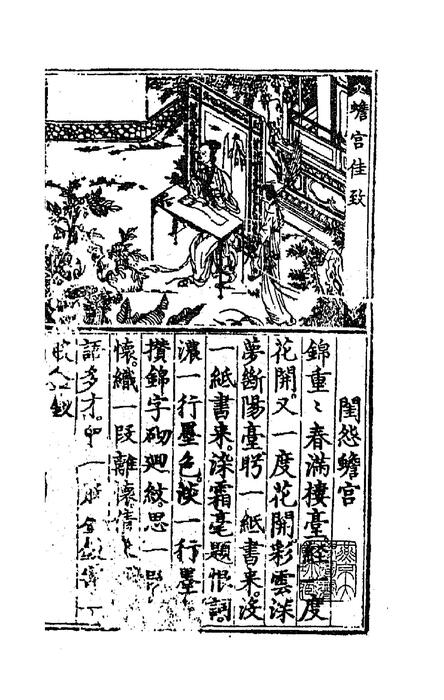 蟾宮佳致
閨怨蟾宮
錦重〻春滿樓臺經一度
花開又一度花開彩雲深
夢斷陽臺盻一紙書來。沒
一紙書來染霜毫題恨詞
濃一行墨色。淡一行墨
攢錦字砌迴紋。思一
懷。織一段離懷。情
語多才。一